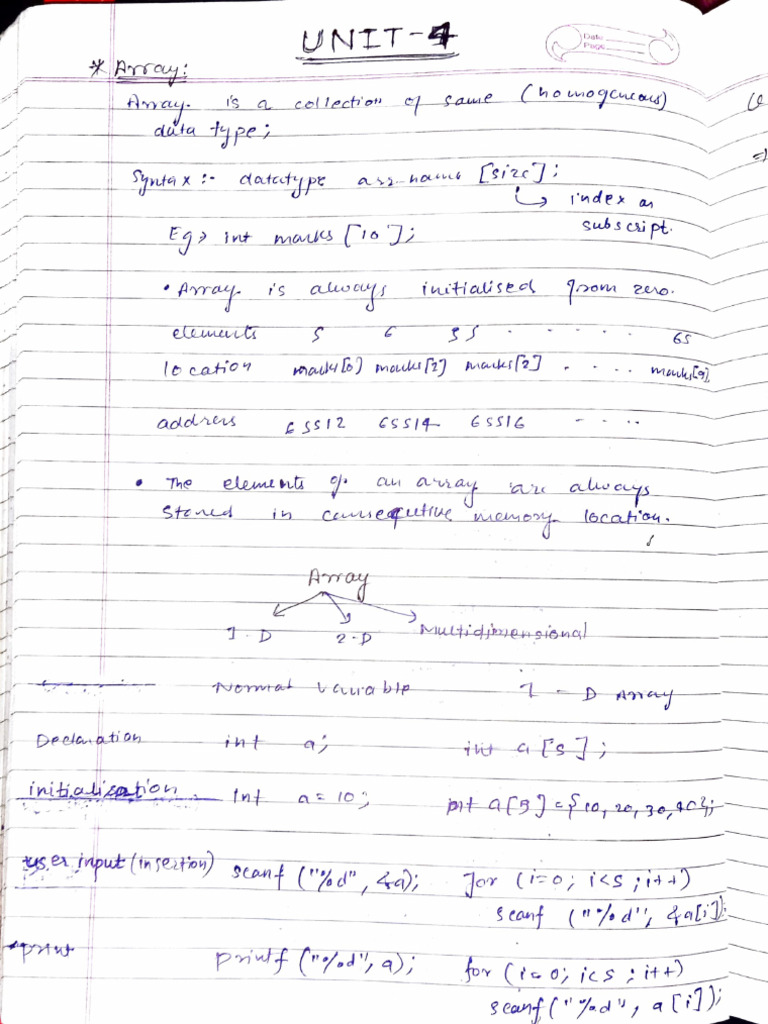 UNIT-4
Date
Page
* Array:
Array is a collection of same (homogeneous)
data type;
Syntax :- datatype arr-name [size];
index or
subscript.
Eg> int marks [10];
• Array is always initialised from zero.
elements 5 6 35 . . . . . 65
location mark[0] marks[2] marks[2] . . . . marks[9]
address 65512 65514 65516 - . . .
• The elements of an array are always
stored in consequtive memory location.
Array
1-D 2-D Multidimensional
Normal Variable 1-D Array
Declaration int a; int a[5];
initialisation int a=10; int a[5]={10,20,30,40};
user input (insertion) scanf ("%d", &a); for (i=0; i<5; i++)
scanf ("%d", &a[i]);
print printf ("%d", a); for (i=0; i<5; i++)
scanf ("%d", a[i]);